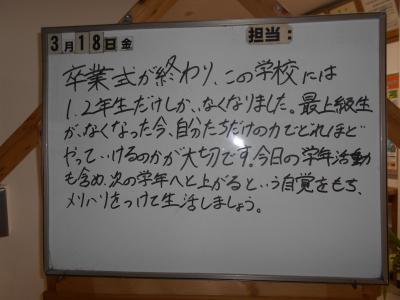 3月18日金 担当:
卒業式が終わり、この学校には
1、2年生だけしか、なくなりました。最上級生
が、なくなった今、自分たちだけの力でどれほど
やっていけるのかが大切です。今日の学年活動
も含め、次の学年へと上がるという自覚をもち、
メリハリをつけて生活しましょう。